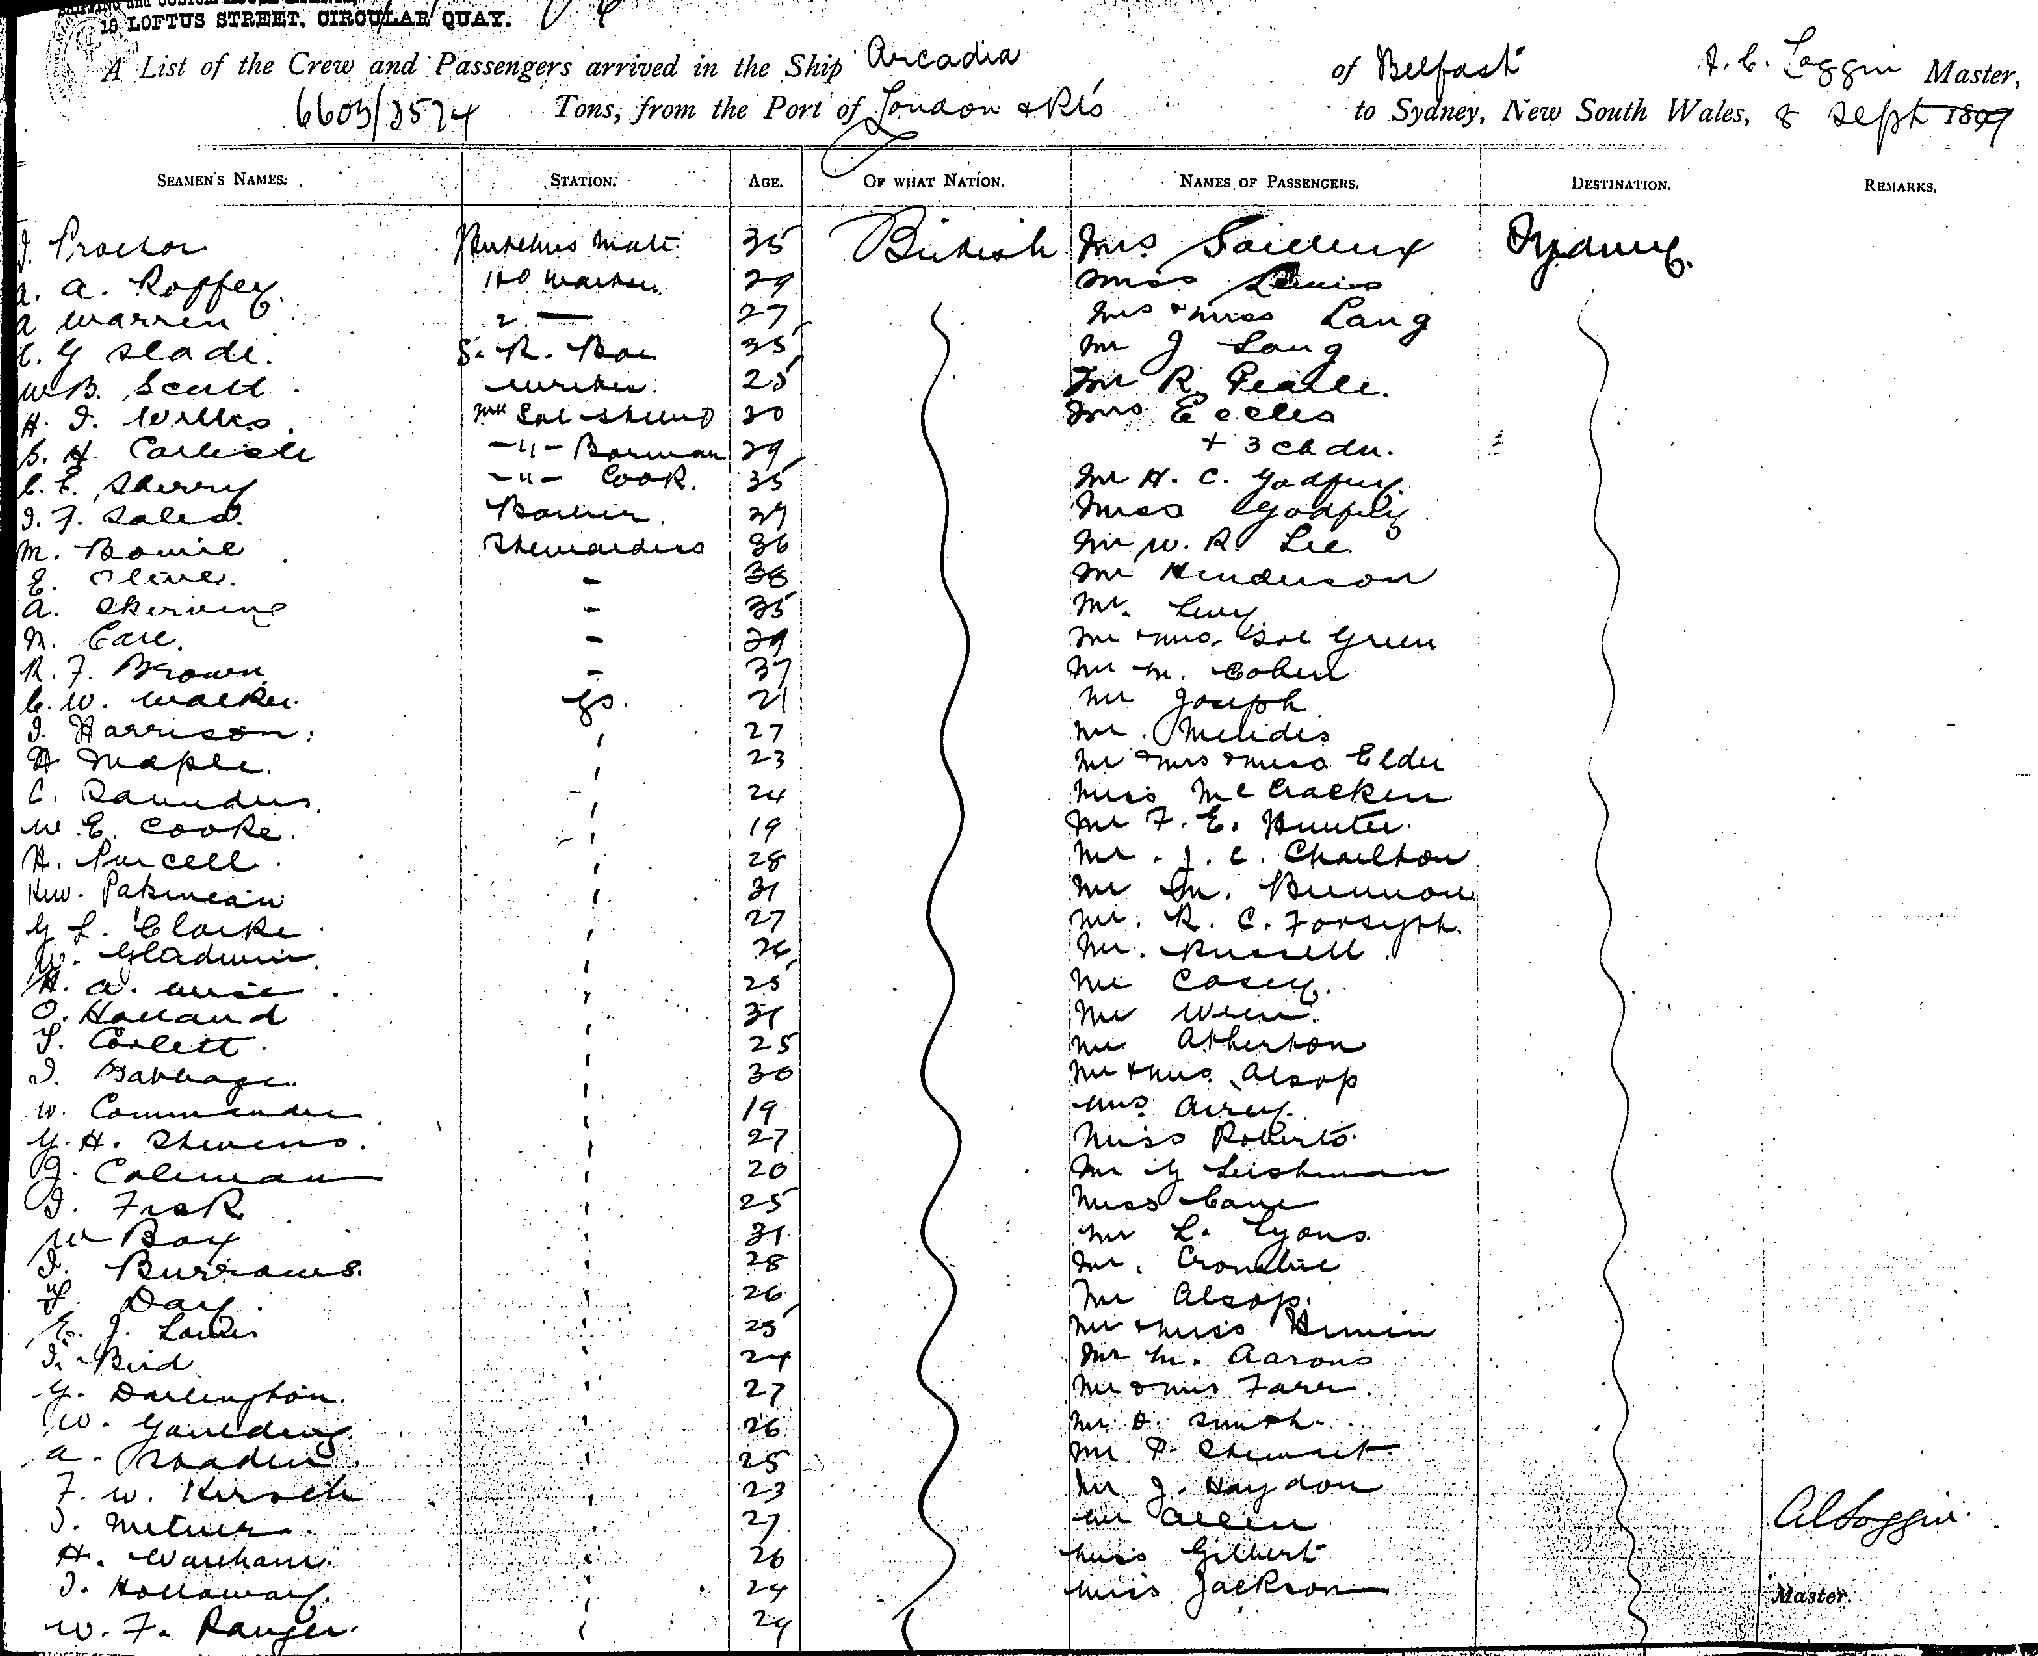 15 LOFTUS STREET, CIRCULAR QUAY.
A List of the Crew and Passengers arrived in the Ship Arcadia of Belfast A. C. Loggin Master,
6603/3574 Tons, from the Port of London & Pts to Sydney, New South Wales, 8 Sept 1897
SEAMEN'S NAMES. STATION. AGE. OF WHAT NATION. NAMES OF PASSENGERS. DESTINATION. REMARKS.
J. Proctor Butchers Mate 35 British Mrs Sydney.
A. A. Roffey. 29 Miss Lewis
A Warren 2 — 27 Mrs & Miss Lang
C. G Slade. S. R. Bar 35 Mr J Lang
W B. Scutt. 25 Mr R Pearce.
H. J. Wilks. 30 Mrs Eccles
S. H Carlisle - " - Barman 29 + 3 chdn.
C. E. Sherry - " - Cook. 35 Mr H. C. Godfrey.
J. F. Sales. Barber. 39 Miss Godfrey
M. Bowie Stewardess 36 Mr W. R. Lee
E. Olive. - 38 Mr Henderson
A. Skirving - 35 Mr. Levy
N. Care. - 29 Mr & Mrs. Sol Green
R. F. Brown - 37 Mr M. Cohen
C. W. Walker. GS. 21 Mr Joseph
J. Harrison. 27 Mr.
H Maple. 23 Mr & Mrs & Miss Elder
C. Saunders. 24 Miss McCracken
W. E. Cooke. 19 Mr F. E. Hunter.
H. Purcell. 28 Mr. J. C. Charlton
31 Mr M.
G L. Clarke 27 Mr. R. C. Forsyth.
W. Gladwin. 26 Mr. Russell
H. A. Wise 25 Mr Casey.
O. Holland 31 Mr
T. Corlett. 25 Mr Atherton
J. Babbage. 30 Mr & Mrs. Alsop
W. Commander 19 Mrs Airey.
G. H. Stevens. 27 Miss Roberts.
J. Coleman 20 Mr G Leishman
J. Fisk 25 Miss Cane
W Box 31 Mr L. Lyons.
J. Burrows. 28 Mr. Crombie
T. Day. 26 Mr Alsop.
E. J. 25 Mr & Miss
J. Bird 24 Mr M. Aarons
G. Darlington. 27 Mr & Mrs Farr.
W. Goulding. 26 Mr D. Smith.
A. 25 Mr P. Stewart
F. W. Hirsch 23 Mr J. Haydon
J. Milner. 27 Mr Allen
A C Loggin.
H. Wareham. 26 Miss Gilbert
J. Holloway. 24 Miss Jackson
Master.
W. F. Ranger. 24